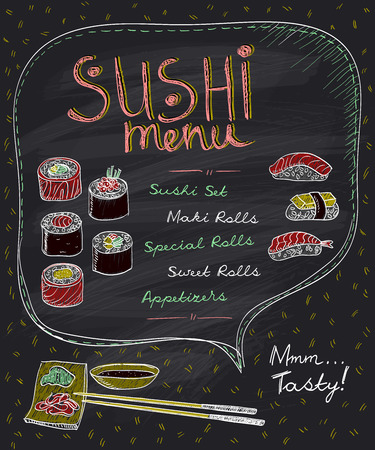 SUSHI
menu
Sushi Set
Maki Rolls
Special Rolls
Sweet Rolls
Appetizers
Mmm...
Tasty!